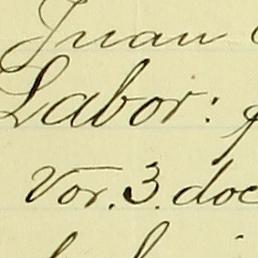 Juan
Labor:
Vor. 3. doc